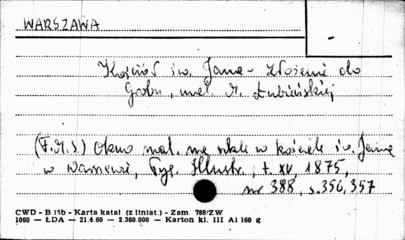 WARSZAWA
Kościół św. Jana - złożenie do
Grobu, mal. M. Łubieńskiej
(F.M.S.) Okno mal. na szkle w kościele św. Jana
w Warszawie, Tyg. Illustr., t. XV, 1875,
nr 388, s. 356, 357
CWD - B 15b - Karta katal (z liniat.) - Zam 788/ZW
1060 — ŁDA — 21.4.60 — 2.360.000 — Karton kl. III A1 160 g